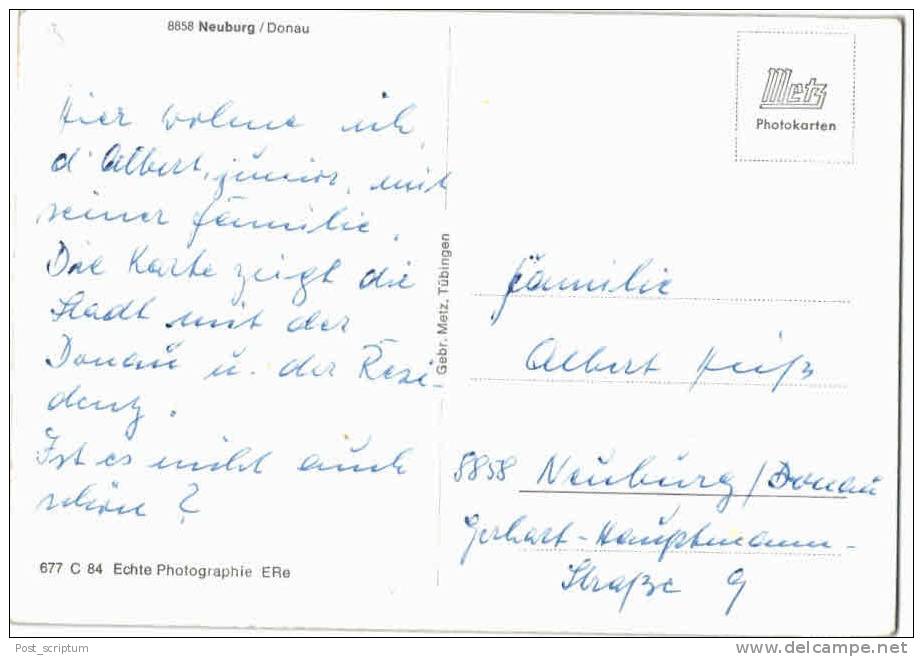 8858 Neuburg / Donau
Hier wohne ich,
d' Albert, junior, mit
seiner Familie.
Die Karte zeigt die
Stadt mit der
Donau u. der Resi-
denz.
Ist es nicht auch
schön?
677 C 84 Echte Photographie ERe
Gebr. Metz, Tübingen
Metz
Photokarten
Familie
Albert Heiß
8858 Neuburg/Donau
Gerhart-Hauptmann-
Straße 9
Post_scriptum
delcampe.net